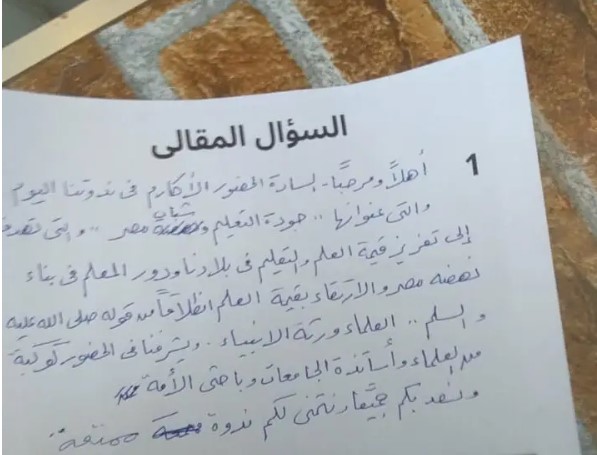 السؤال المقالى
1
أهلاً ومرحبًا - السادة الحضور الأكارم فى ندوتنا اليوم
والتى عنوانها .. جودة التعليم وشباب مصر .. والتى تهدف
إلى تعزيز قيمة العلم والتعليم فى بلادنا ودور المعلم فى بناء
نهضة مصر والارتقاء بقيمة العلم انطلاقاً من قوله صلى الله عليه
والسلم .. العلماء ورثة الانبياء . ويشرفنا فى الحضور كوكبة
من العلماء وأساتذة الجامعات وباحثى الأمة
ونسعد بكم جميعًا ونتمنى لكم ندوة ممتعة.